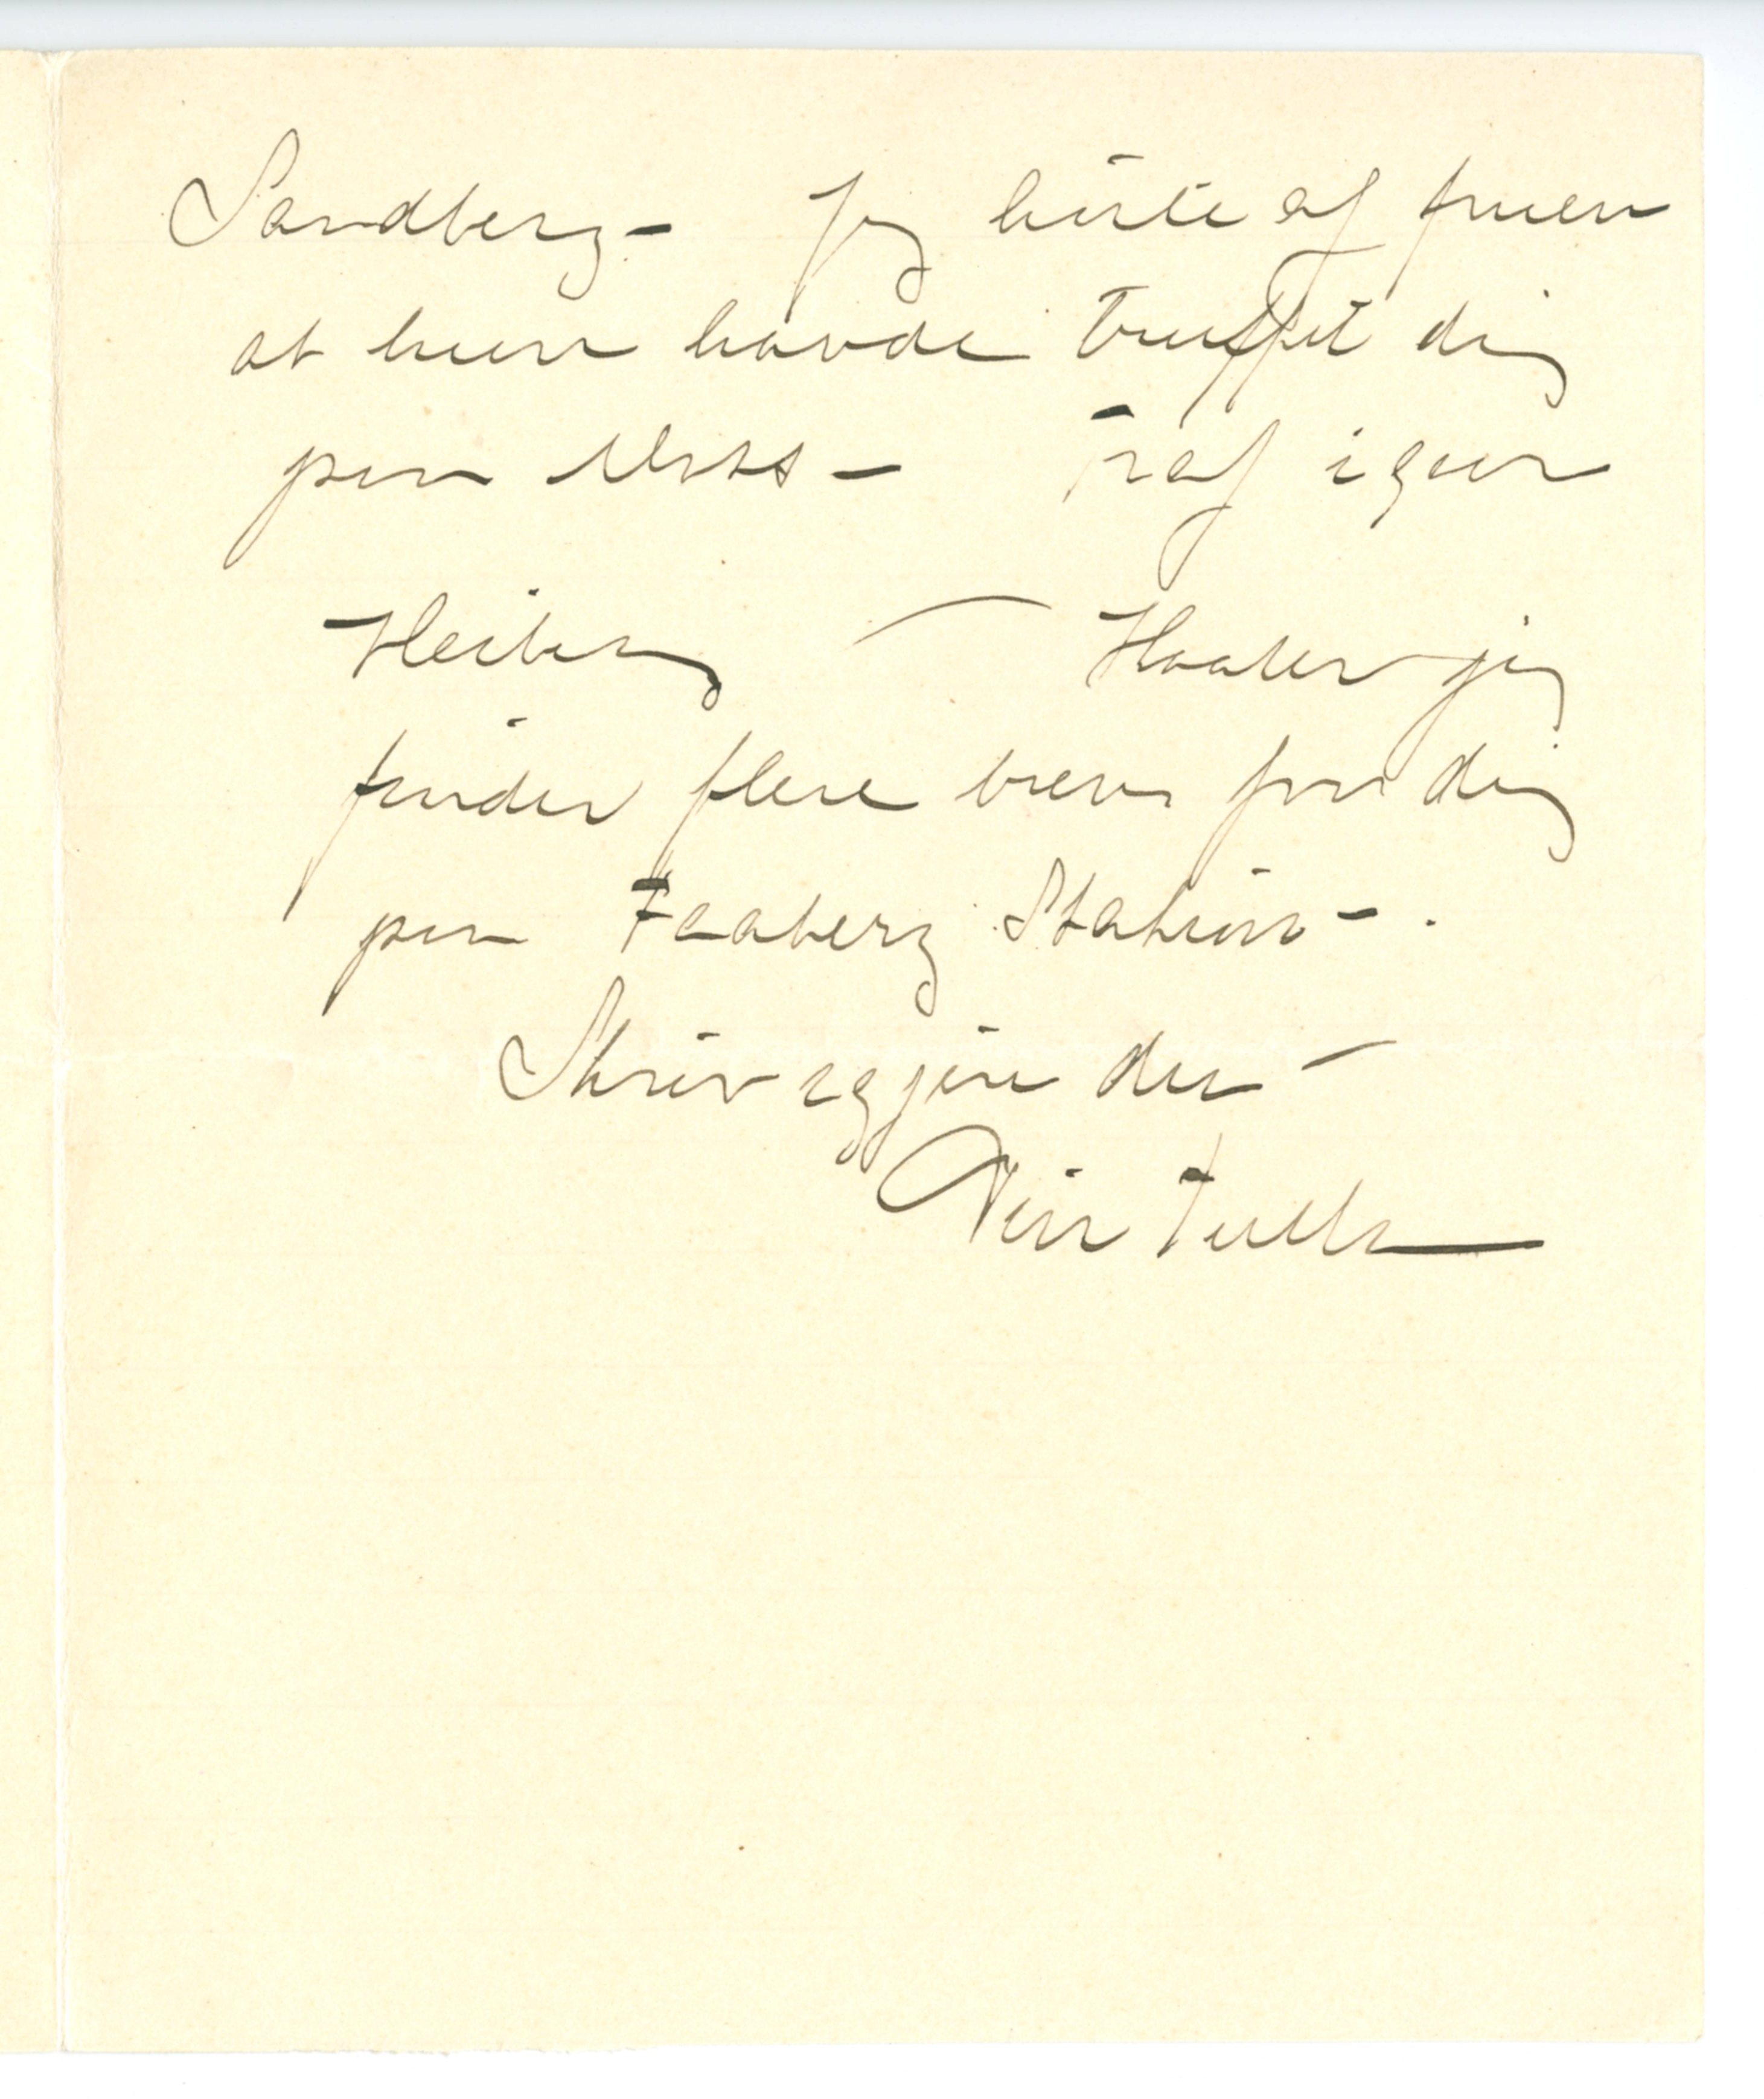 Sandberg – Jeg hørte af fruen
at hun havde truffet dig
paa Moss – Traf igaar
Heiberg — Haaber jeg
finder flere breve fra dig
paa Faaberg Station –.
Skriv og gjør det –
Din Tulla